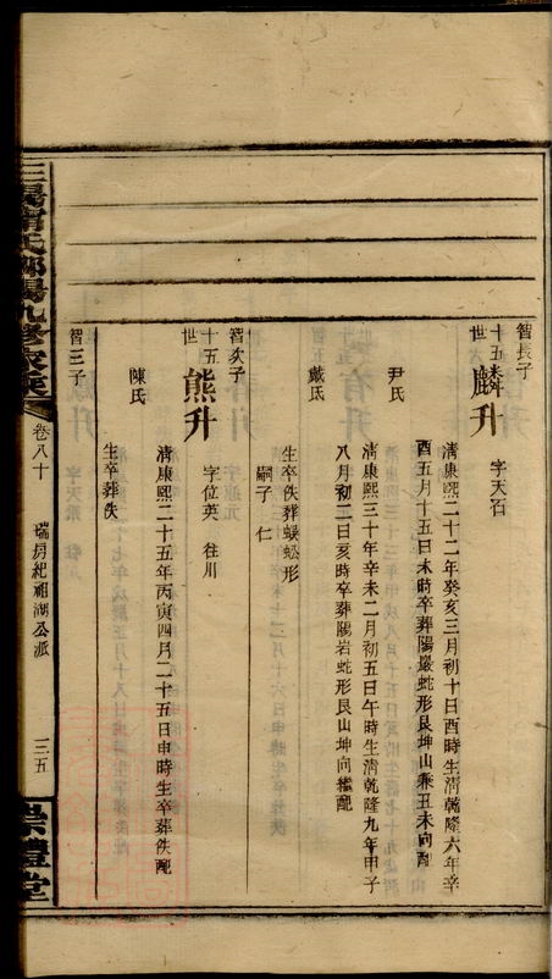 智長子
十五世
麟升
字天石
清康熙二十二年癸亥三月初十日酉時生清乾隆六年辛
酉五月十五日未時卒葬陽巖蛇形艮坤山兼丑未向配
尹氏
清康熙三十年辛未二月初五日午時生清乾隆九年甲子
八月初二日亥時卒葬陽岩蛇形艮山坤向繼配
戴氏
生卒佚葬蜈蚣形
嗣子 仁
智次子
十五世
熊升
字位英 往川
清康熙二十五年丙寅四月二十五日申時生卒葬佚配
陳氏
生卒葬佚
智三子
氏邵陽九修家乘
卷八十
瑞房紀祖湖公派
一三五
崇禮堂